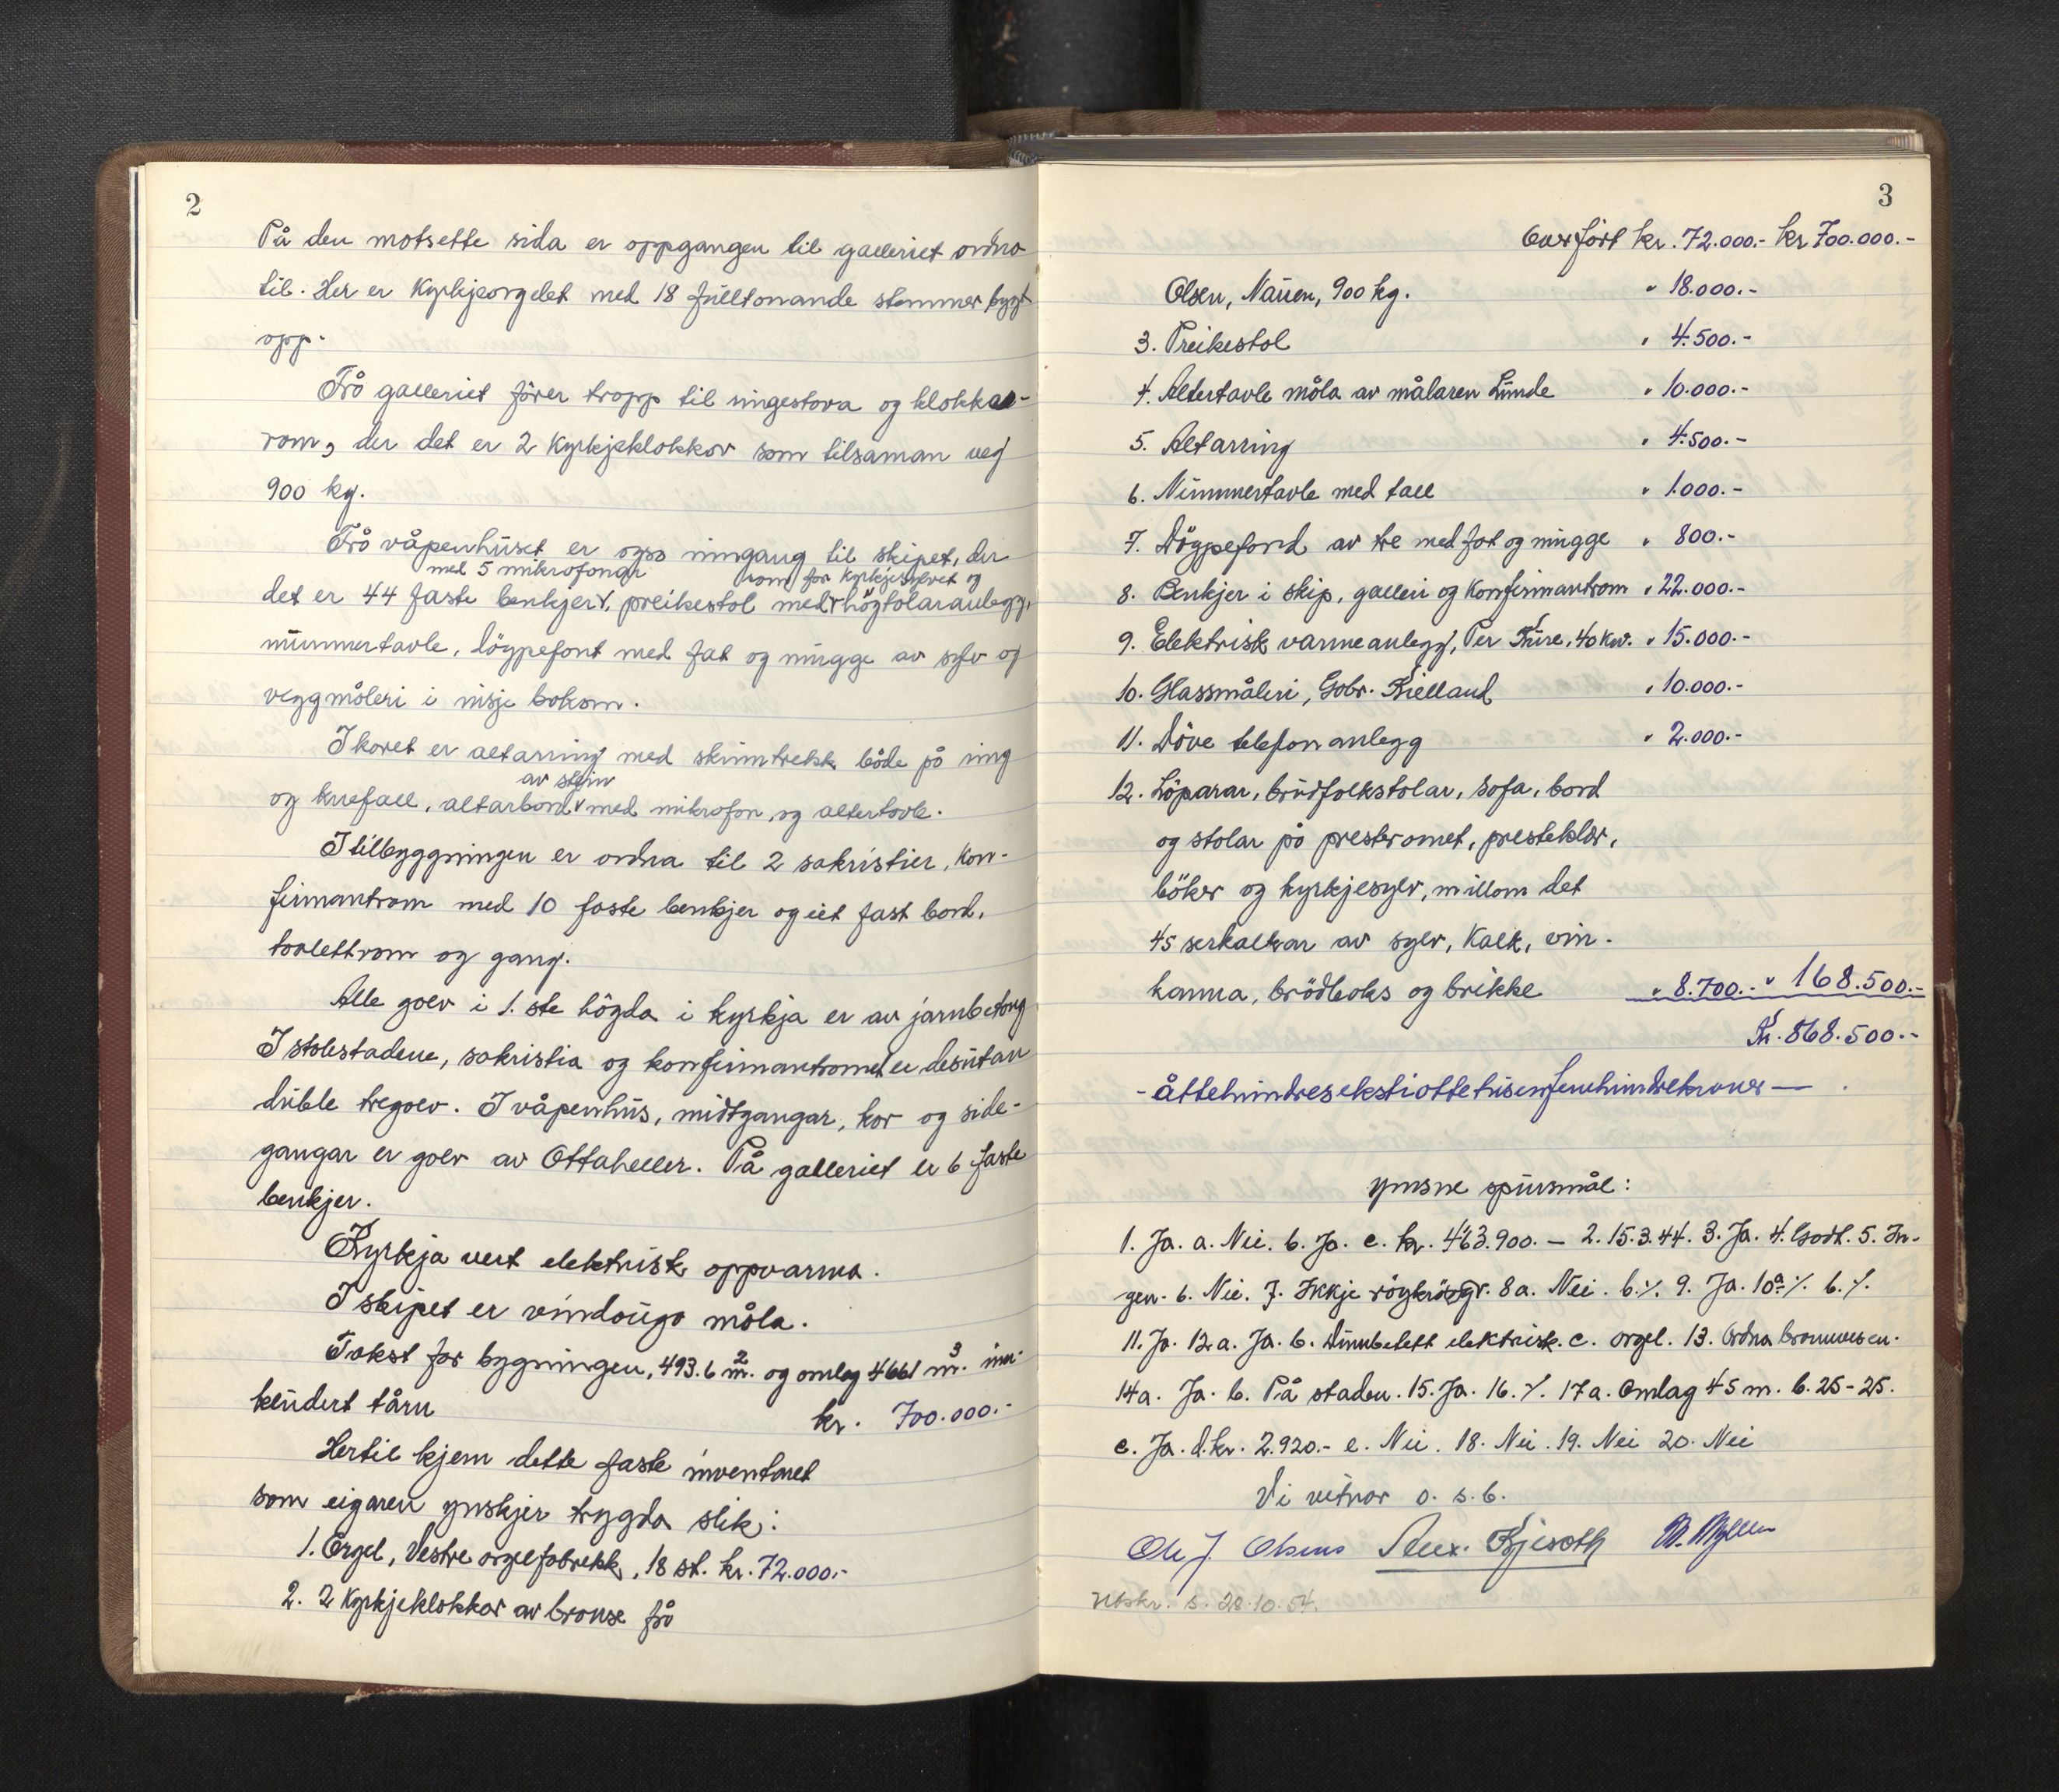 2
På den motsette sida er oppgangen til galleriet ordna
til. Her er Kyrkjeorgelet med 18 fulltonande stemmer bygt
opp.
Frå galleriet fører tropp til ringestova og klokka-
rom, der det er 2 Kyrkjeklokkor som tilsaman veg
900 kg.
Frå våpenhuset er ogso inngang til skipet, der
med 5 mikrofonar rom for kyrkjesylvet og
det er 44 faste benkjer, preikestol med högtalaranlegg,
nummertavle, döypefont med fat og mugge av sylv og
veggmåleri i nisje bokom.
I koret er altarring med skinntrekk både på ring
av stein
og knefall, altarbord med mikrofon, og altertavle.
I tilbyggningen er ordna til 2 sakristier, Kon-
firmantrom med 10 faste benkjer og eit fast bord,
toalettrom og gang.
Alle golv i 1.ste högda i kyrkja er av jarnbetong
I stolestadene, sakristia og konfirmantromet er desutan
duble tregolv. I våpenhus, midtgangar, kor og side-
gangar er golv av Ottaheller. På galleriet er 6 faste
benkjer.
Kyrkja vert elektrisk oppvarma.
I skipet er vindaugo måla.
Takst for bygningen, 493.6 m². og omlag 4661 m³. inn-
kludert tårn kr. 700.000.-
Hertil kjem dette faste inventaret
som eigaren ynskjer trygda slik:
1. Orgel, Vestre orgelfabrikk, 18 st. kr. 72.000.-
2. 2 Kyrkjeklokkor av bronse frå
3
Overført kr. 72.000.- kr 700.000.-
Olsen, Nauen, 900 kg. " 18.000.-
3. Preikestol " 4.500.-
4. Altertavle måla av målaren Lunde " 10.000.-
5. Altarring " 4.500.-
6. Nummertavle med tall " 1.000.-
7. Döypefond av tre med fat og mugge " 800.-
8. Benkjer i skip, galleri og Konfirmantrom " 22.000.-
9. Elektrisk varmeanlegg, Per Kure, 40 kw. " 15.000.-
10. Glassmåleri, Gobr. Kielland " 10.000.-
11. Döve telefonanlegg " 2.000.-
12. Löparar, brudfolkstolar, sofa, bord
og stolar på presteromet, presteklær,
böker og kyrkjesylv, millom det
45 serkalkar av sylv, Kalk, vin-
kanna, brödboks og brikke " 8.700.- " 168.500.-
Kr. 868.500.-
- åttehundresekstiottetusenfemhundrekroner —
Ymsne spursmål:
1. Ja. a. Nei. b. Ja. c. kr. 463.900. — 2. 15.3.44. 3. Ja. 4. Godt. 5. In-
gen. 6. Nei. 7. Ikkje 8a. Nei. b. ⁒. 9. Ja. 10a ⁒. b. ⁒.
11. Ja. 12a. Ja. b. Innbetett elektrisk. c. orgel. 13. Ordna brannvesen.
14a. Ja. b. På staden. 15. Ja. 16. ⁒. 17a. Omlag 45 m. b. 25-25.
c. Ja. d. kr. 2.920.- e. Nei. 18. Nei. 19. Nei 20. Nei
Vi vitnar o. s. b.
Ole J. Olsens Alex.
Utskr. s. 28.10.54.